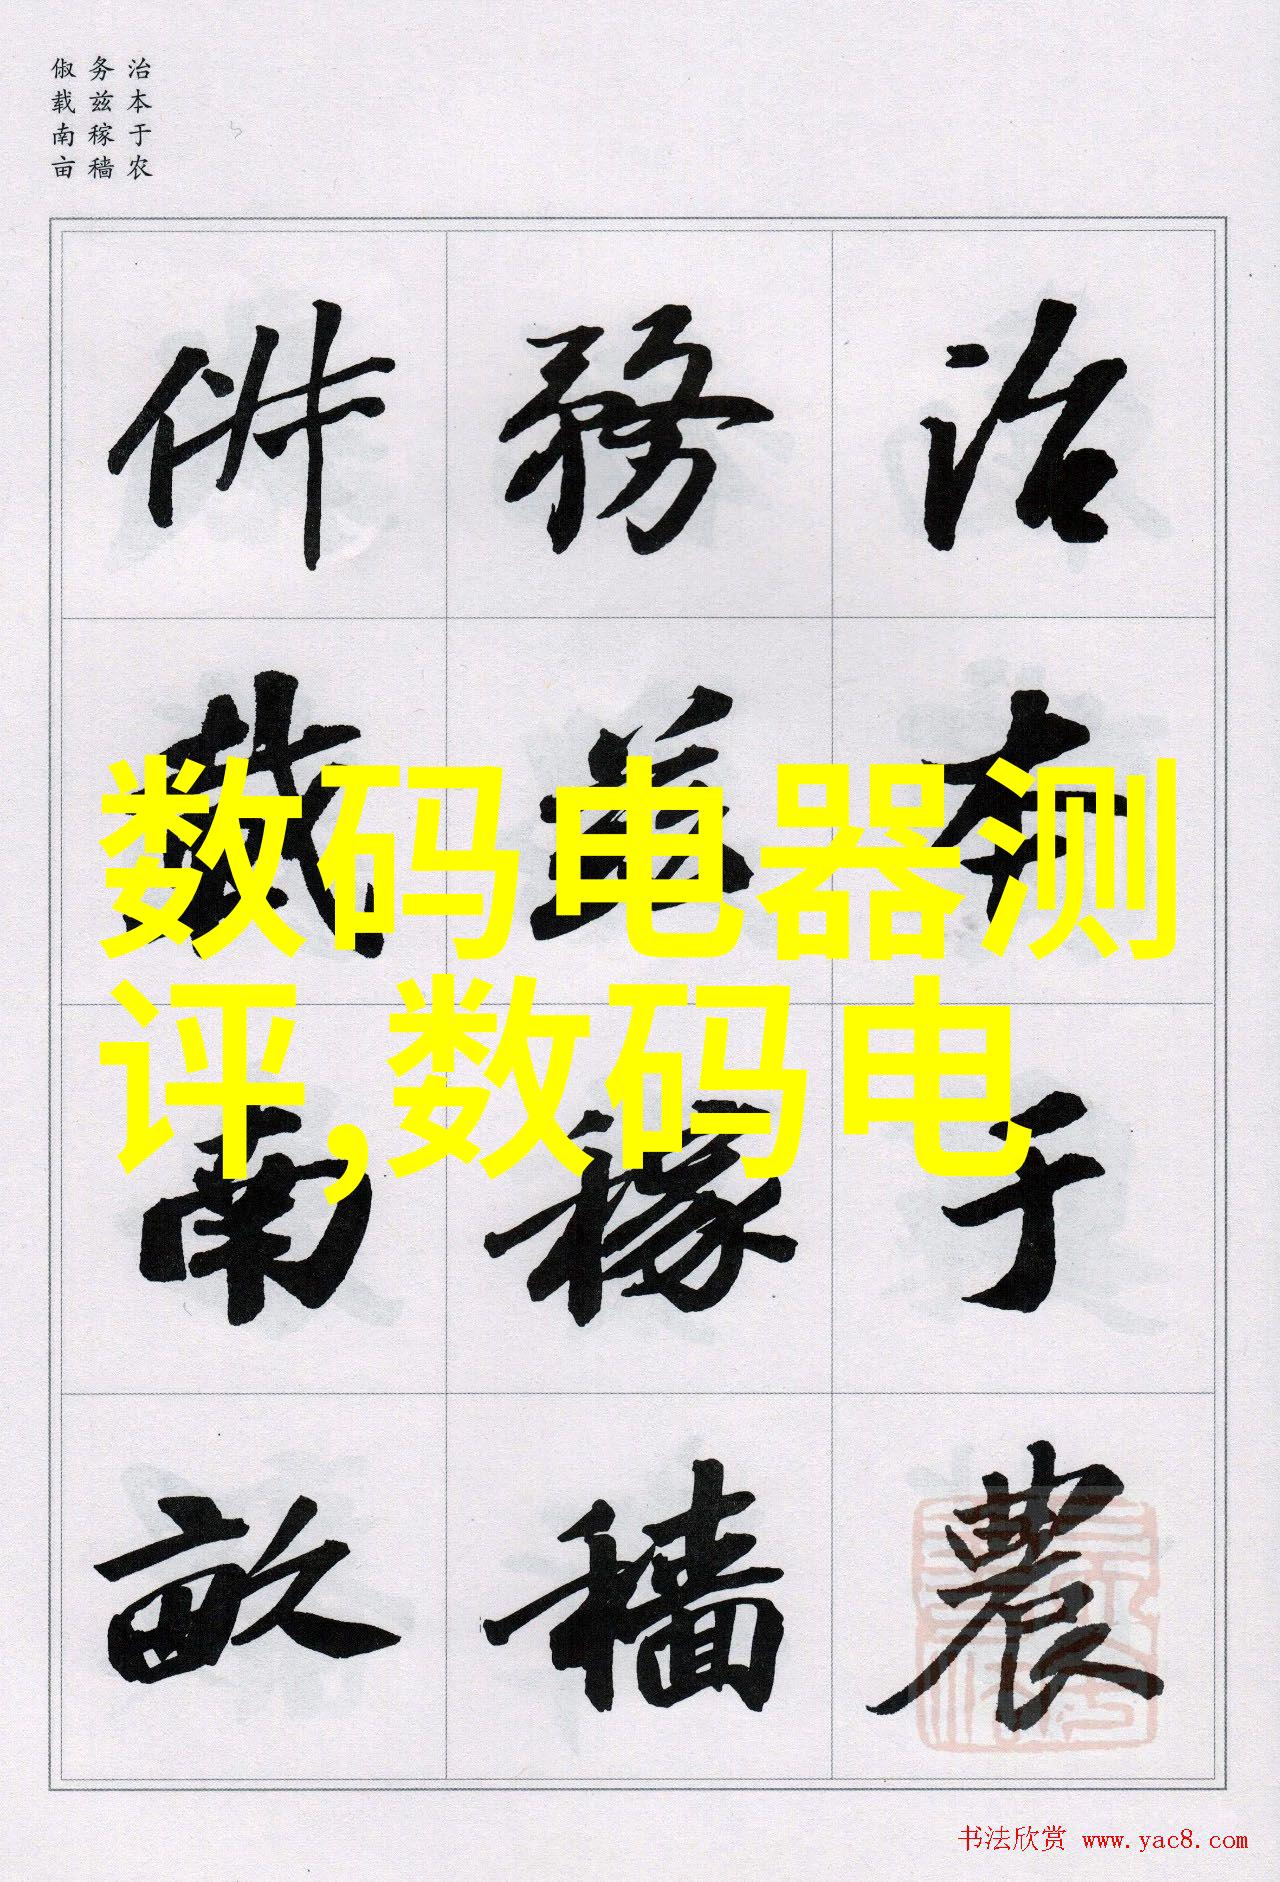 治本于农
务兹稼穑
俶载南亩
治本于農
務茲稼穡
俶載南畝
数码电器测
评,数码电
书法欣赏 www.yac8.com